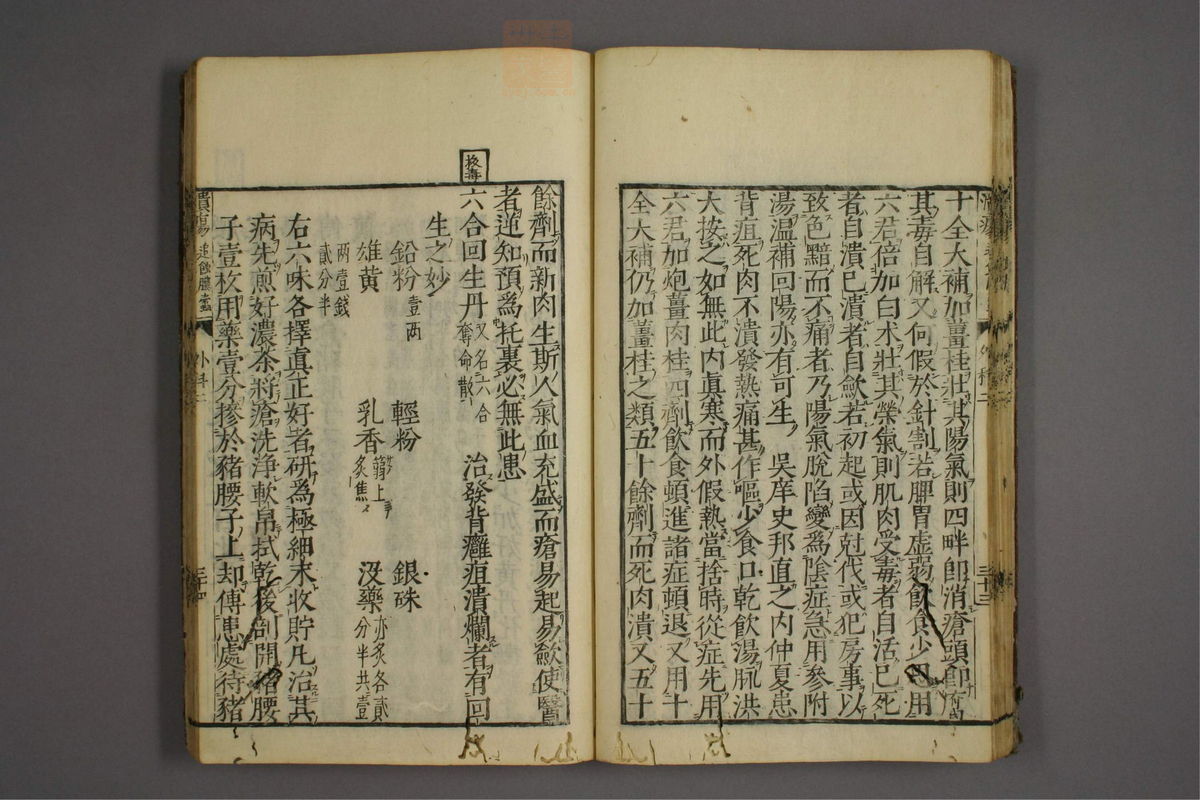 十全大補加薑桂壯其陽氣則四畔即消瘡頭即腐
其毒自解又何假於針割若脾胃虛弱飲食少思用
六君倍加白朮壯其榮氣則肌肉受毒者自活已死
者自潰已潰者自斂若初起或因尅伐或犯房事以
致色黯而不痛者乃陽氣脫陷變爲陰症急用參附
湯溫補回陽亦有可生 吳庠史邦直之內仲夏患
背疽死肉不潰發熱痛甚作嘔少食口乾飲湯脈洪
大按之如無此內眞寒而外假熱當捨時從症先用
六君加炮薑肉桂四劑飲食頓進諸症頓退又用十
全大補仍加薑桂之類五十餘劑而死肉潰又五十
餘劑而新肉生斯人氣血充盛而瘡易起易斂使醫
者逆知預爲托裏必無此患
拔毒
六合回生丹又名六合奪命散 治發背癰疽潰爛者有回
生之妙
鉛粉壹兩 輕粉 銀硃
雄黃 乳香篛上炙焦 沒藥亦炙各貳分半共壹
兩壹錢貳分半
右六味各擇眞正好者研爲極細末收貯凡治其
病先煎好濃茶將瘡洗淨軟帛拭乾後剖開猪腰
子壹枚用藥壹分摻於猪腰子上却傅患處待猪
潰瘍 外科二 三十四